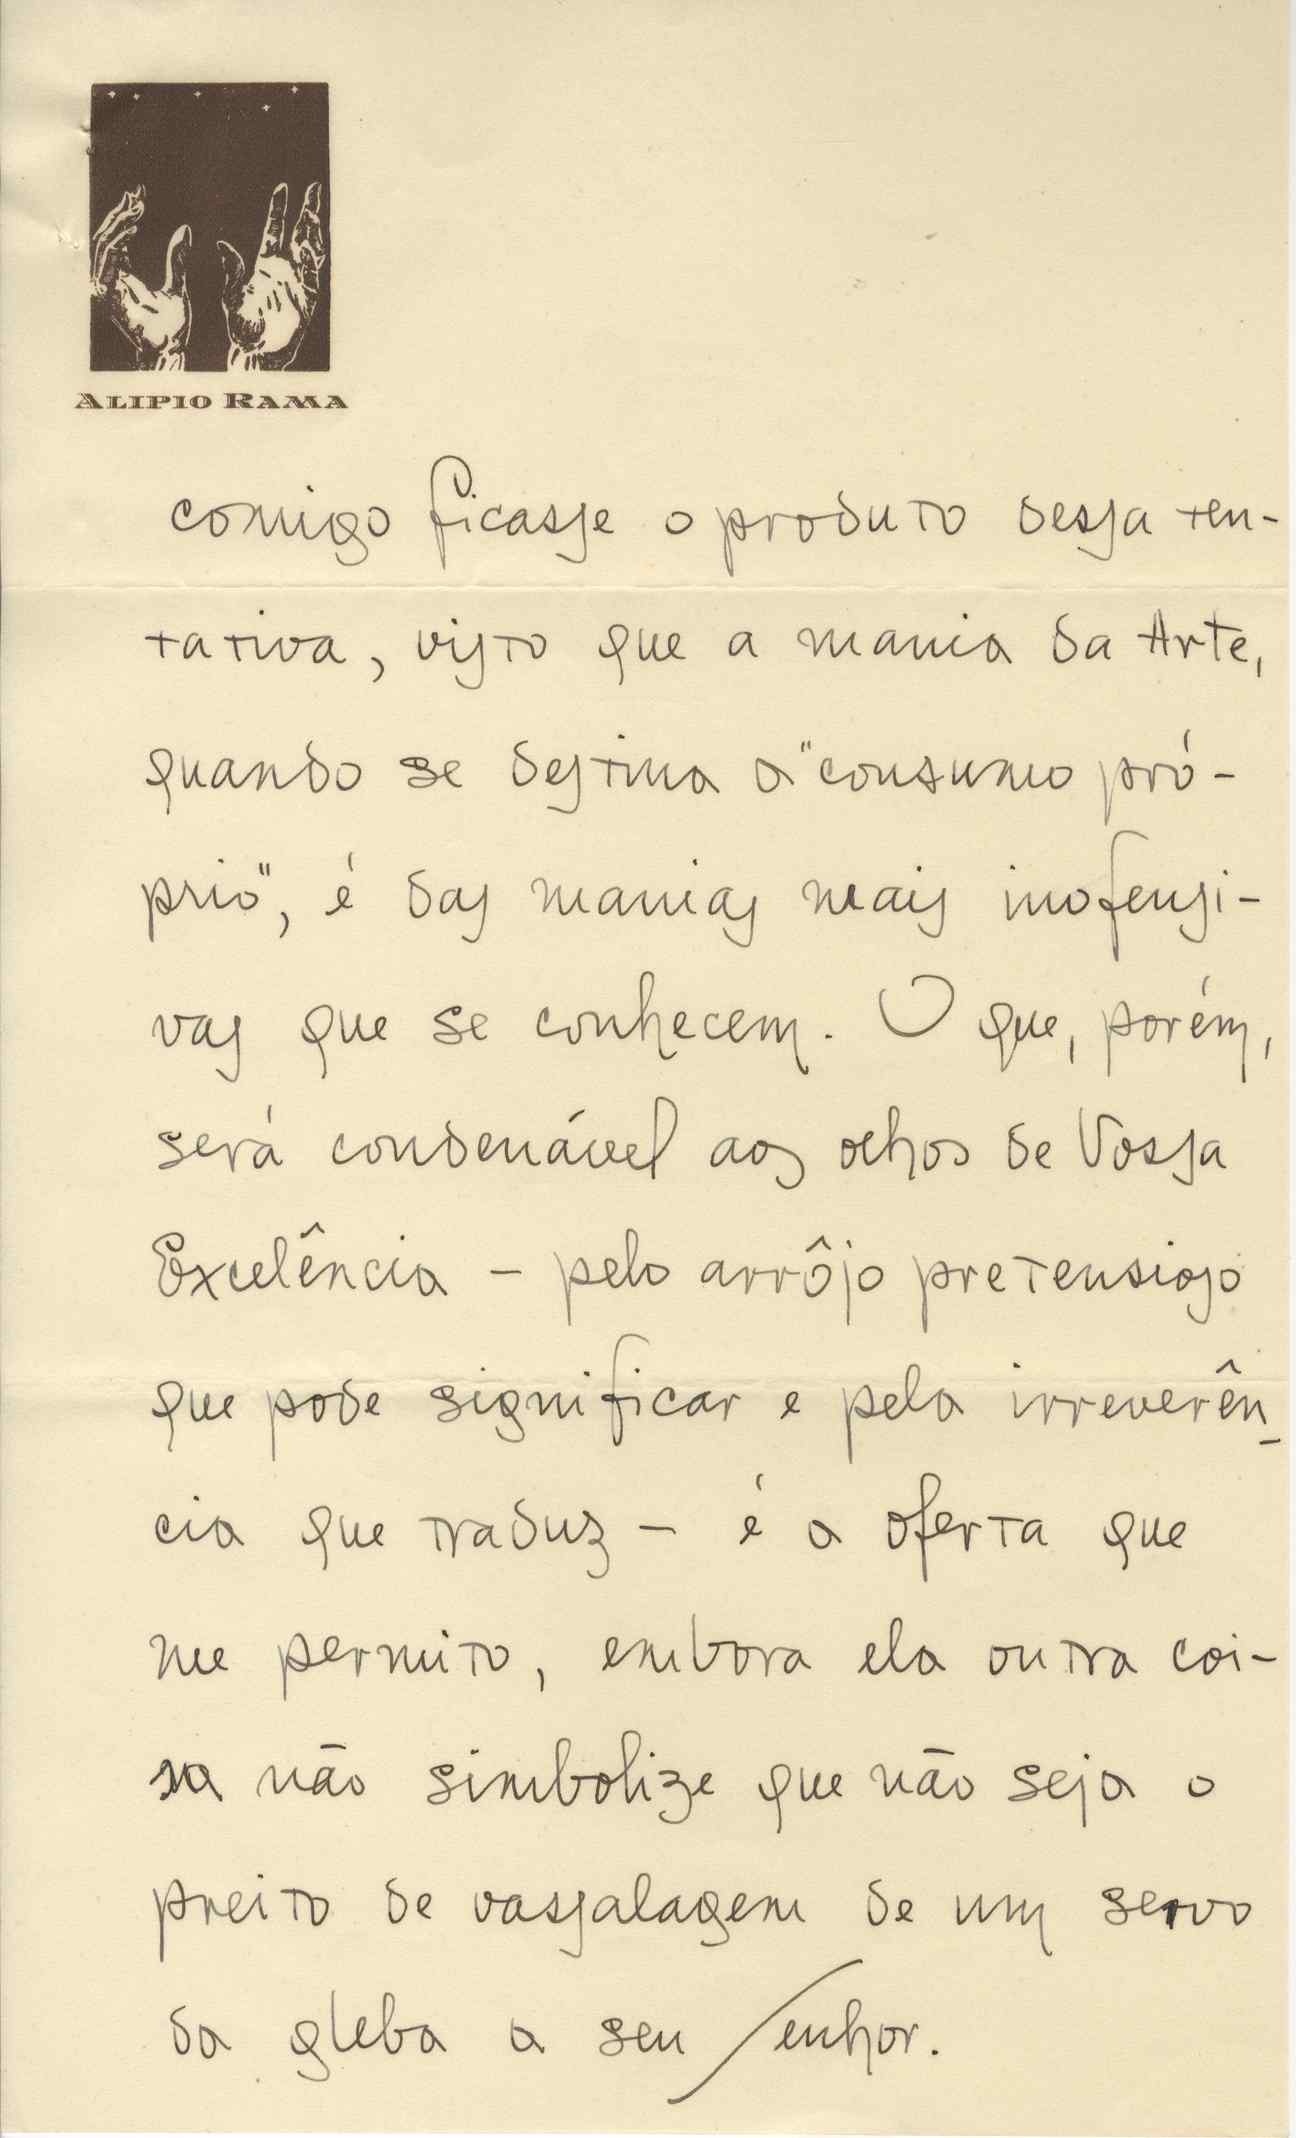 ALIPIO RAMA
comigo ficasse o produto dessa ten-
tativa, visto que a mania da Arte,
quando se destina a "consumo pró-
prio", é das manias mais inofensi-
vas que se conhecem. O que, porém,
será condenável aos olhos de Vossa
Excelência – pelo arrôjo pretensioso
que pode significar e pela irreverên-
cia que traduz – é a oferta que
me permito, embora ela outra coi-
sa não simbolize que não seja o
preito de vassalagem de um servo
da gleba a seu Senhor.